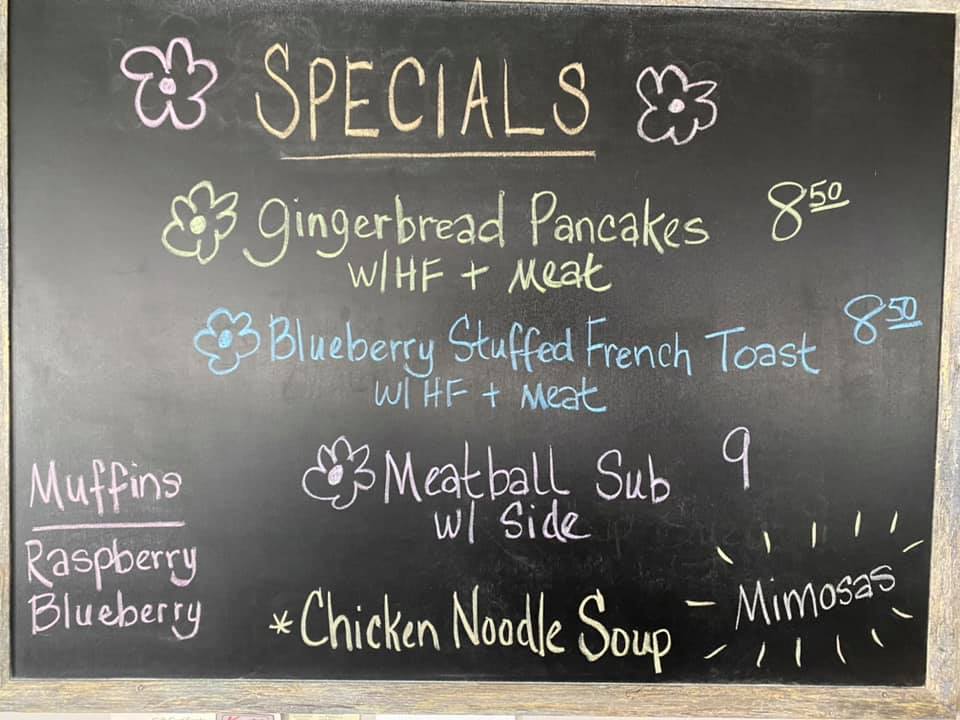 SPECIALS
Gingerbread Pancakes 8 50
W/HF + Meat
Blueberry Stuffed French Toast 8 50
W/ HF + Meat
Meatball Sub 9
w/ Side
Muffins
Raspberry
Blueberry
*Chicken Noodle Soup
Mimosas